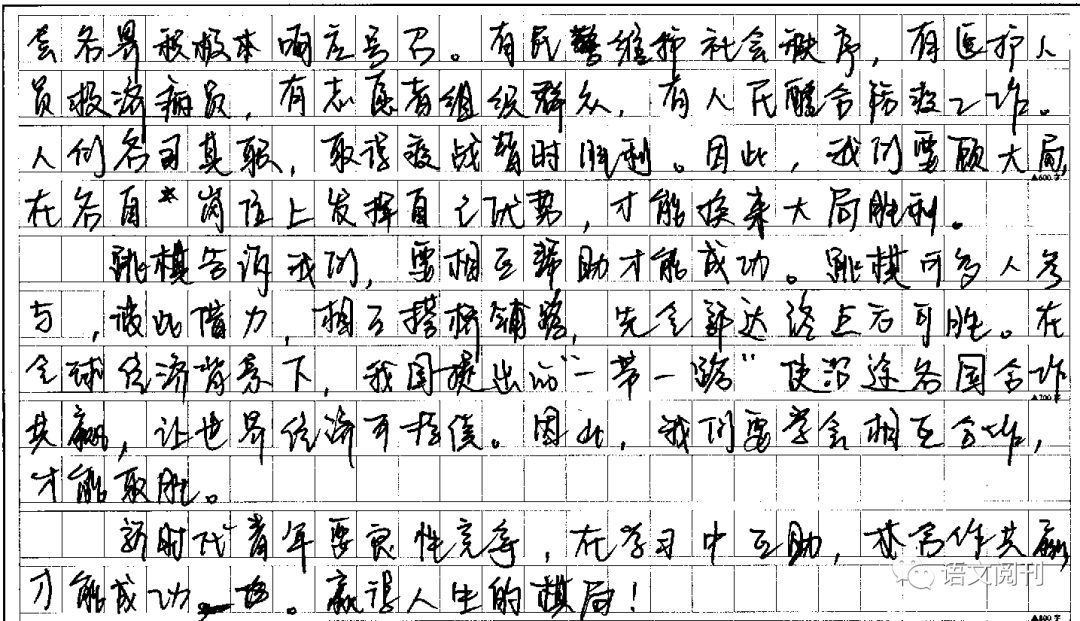 会各界积极本响应号召。有民警维护社会秩序，有医护人
员救济病员，有志愿者组织群众，有人民配合防疫工作。
人们各司其职，取得疫战暂时胜利。因此，我们要顾大局，
▲600字
在各自岗位上发挥自己优势，才能换来大局胜利。
跳棋告诉我们，要相互帮助才能成功。跳棋可多人参
与，彼此借力，相互搭桥铺路，先全部达终点者可胜。在
全球经济背景下，我国提出的“一带一路”使沿途各国合作
▲700字
共赢，让世界经济可持续。因此，我们要学会相互合作，
才能取胜。
新时代青年要良性竞争，在学习中互助，合作共赢
才能成功。赢得人生的棋局！
语文阅刊
▲800字